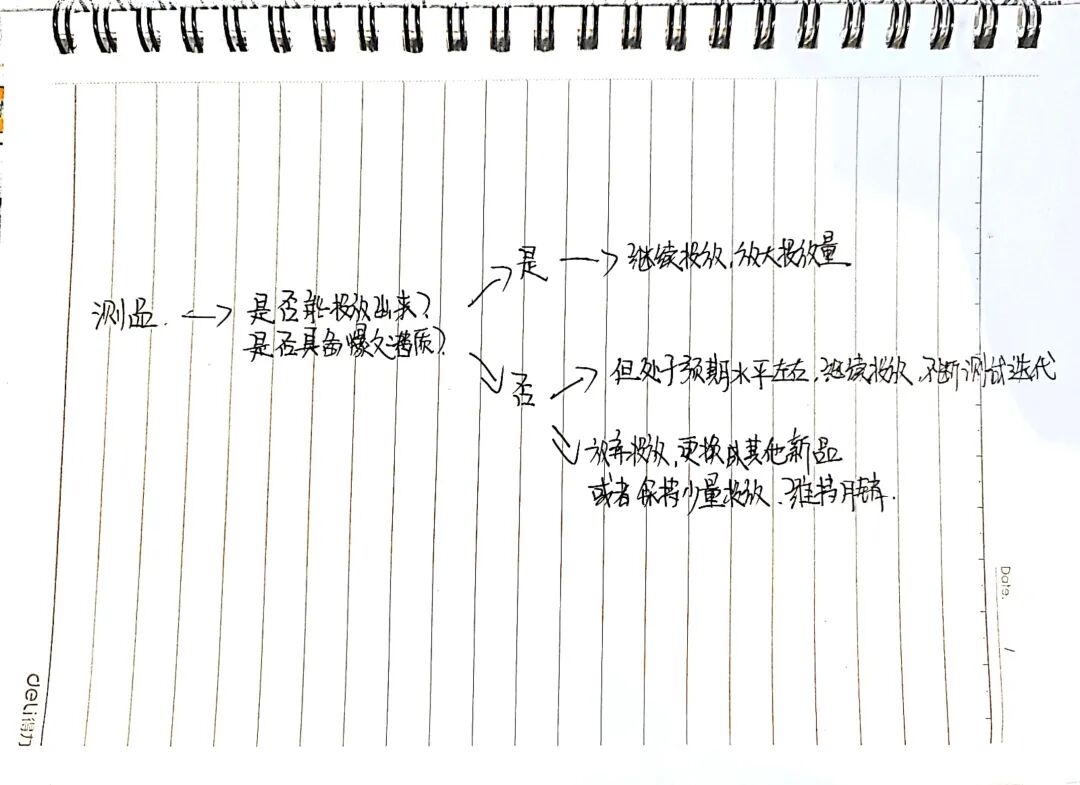 测品. → 是否能投放出来?
是否具备爆文潜质?
是 → 继续投放,放大投放量
否
但处于预期水平左右,继续投放,不断测试迭代
放弃投放,更换以其他新品
或者保持少量投放、维持月销.
Date.
/
deli得力